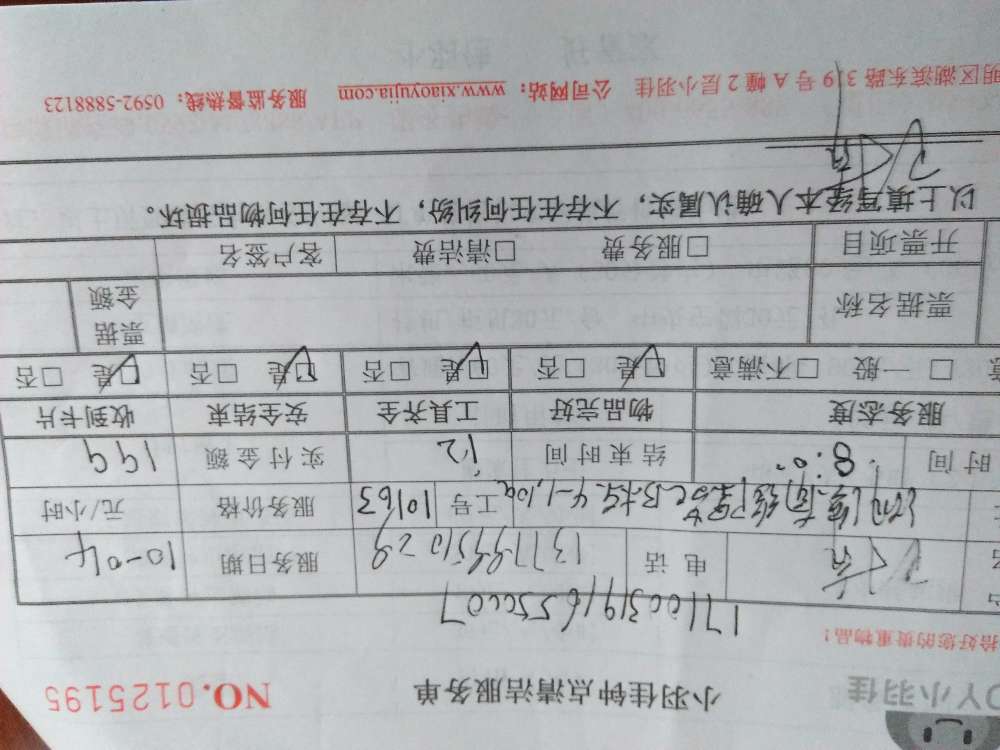 OYY小羽佳
小羽佳钟点清洁服务单 NO.0125195
恰好您的贵重物品！
电话 服务日期 10-04
工号 10163 服务价格 元/小时
时间 8:00 结束时间 12 实付金额 199
服务态度 物品完好 工具齐全 安全结束 收到卡片
意 □一般 □不满意 □是 □否 □是 □否 □是 □否 □是 □否
票据名称 票据金额
开票项目 □服务费 □清洁费 客户签名
以上填写经本人确认属实，不存在任何纠纷，不存在任何物品损坏。
明区湖滨东路319号A幢2层小羽佳 公司网站：www.xiaoyujia.com 服务监督热线：0592-5888123